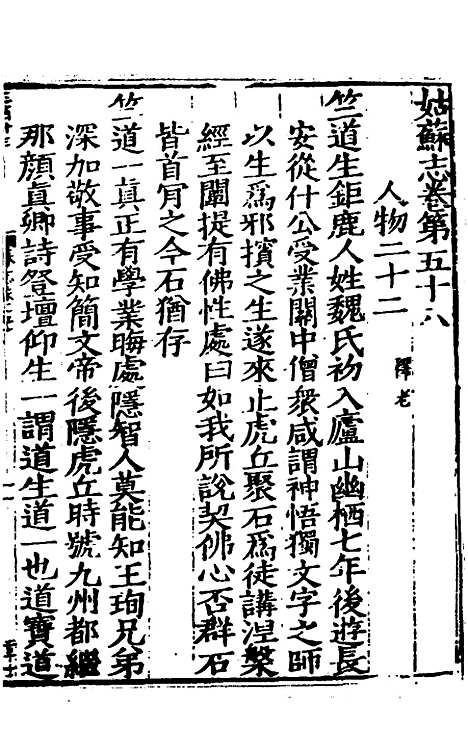 姑蘇志卷第五十八
人物二十二 釋老
竺道生鉅鹿人姓魏氏初入廬山幽栖七年後遊長
安從什公受業關中僧衆咸謂神悟獨文字之師
以生爲邪擯之生遂來止虎丘聚石爲徒講涅槃
經至闡提有佛性處曰如我所說契佛心否群石
皆首肎之今石猶存
竺道一眞正有學業晦處隱智人莫能知王珣兄弟
深加敬事受知簡文帝後隱虎丘時號九州都維
那顏眞卿詩登壇仰生一謂道生道一也道寶道